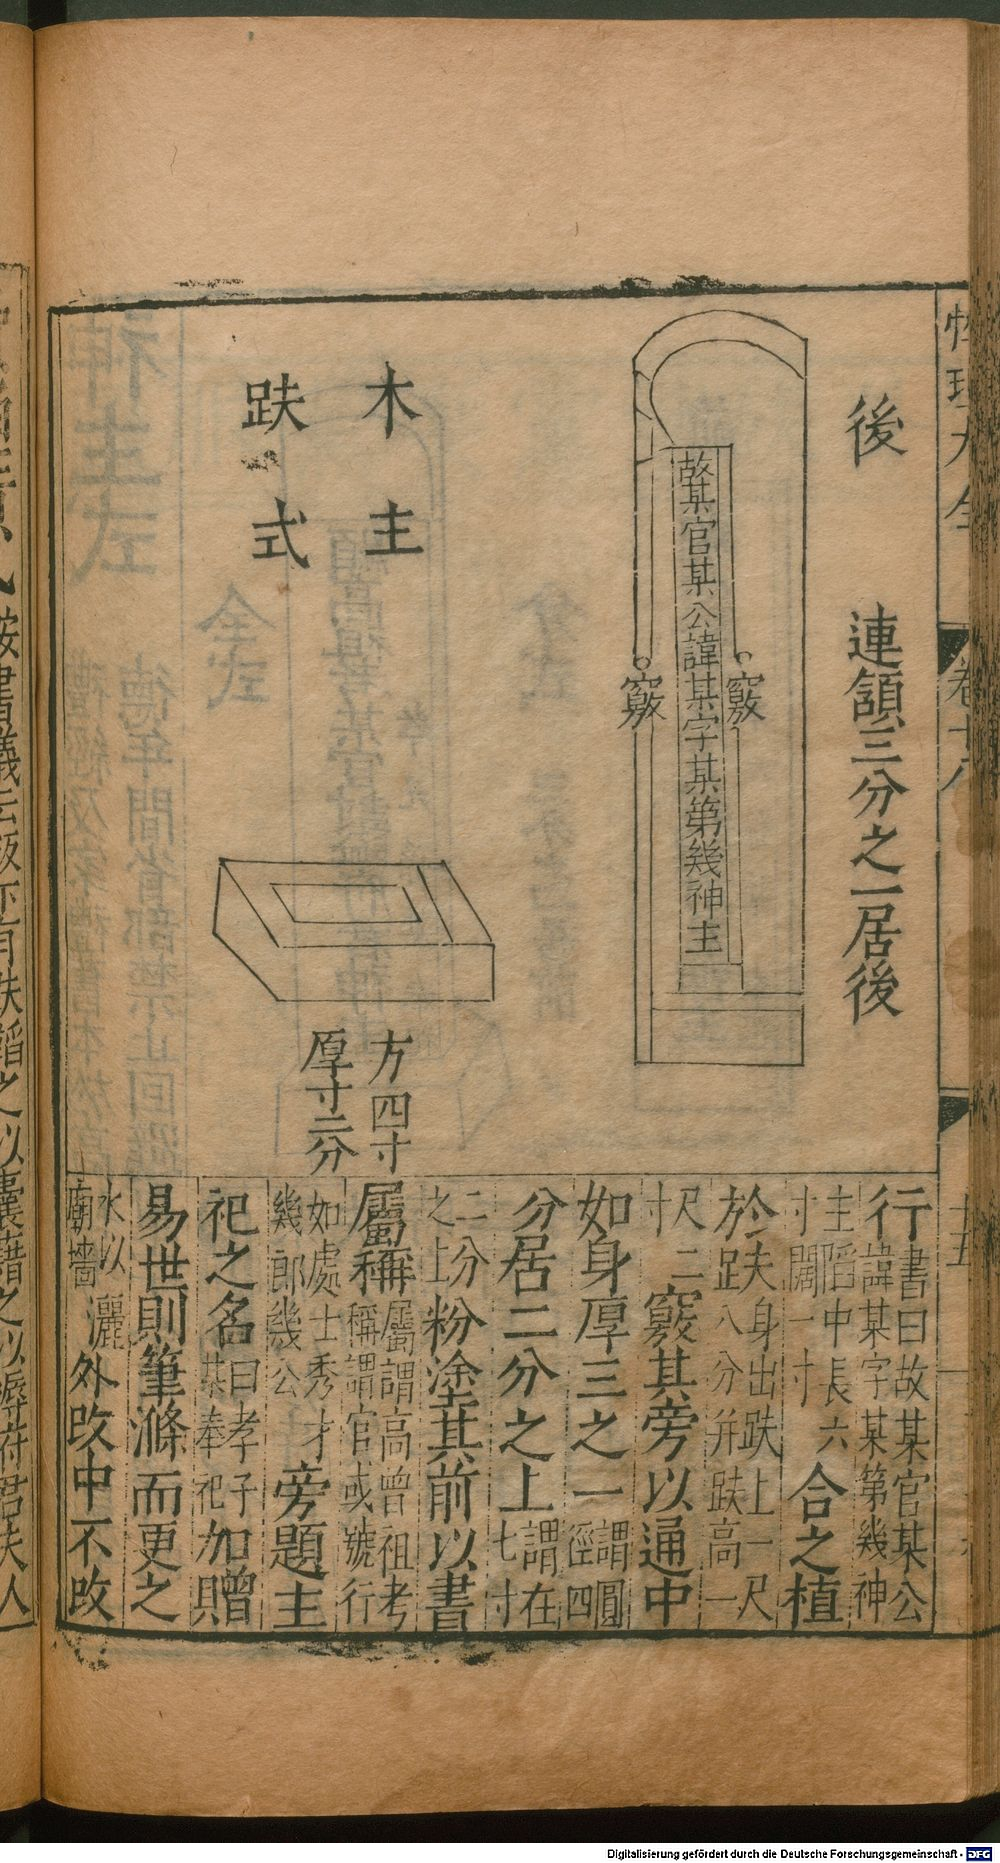 性理大全
卷十八
後
連領三分之一居後
故某官某公諱某字某第幾神主
竅
竅
木主
趺式
方四寸
厚寸二分
行書曰故某官某公
諱某字某第幾神
主陷中長六
寸闊一寸
合之植
於趺身出趺上一尺
趺八分并趺高一
尺二
寸
竅其旁以通中
如身厚三之一謂圓
徑四
分居二分之上謂在
七寸
二分
之上
粉塗其前以書
屬稱屬謂高曾祖考
稱謂官或號行
如處士秀才
幾郎幾公
旁題主
祀之名曰孝子
某奉祀
加贈
易世則筆滌而更之
水以灑
廟墻
外改中不改
按書儀云版亦有趺韜之以囊藉之以褥府君夫人
Digitalisierung gefördert durch die Deutsche Forschungsgemeinschaft - DFG